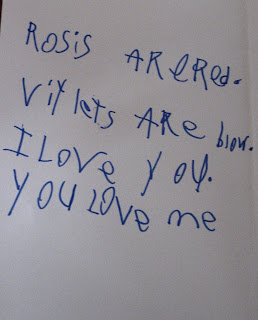 ROSIS ARe Red.
ViYlets ARe blow.
I Love You.
YOU LOVe me